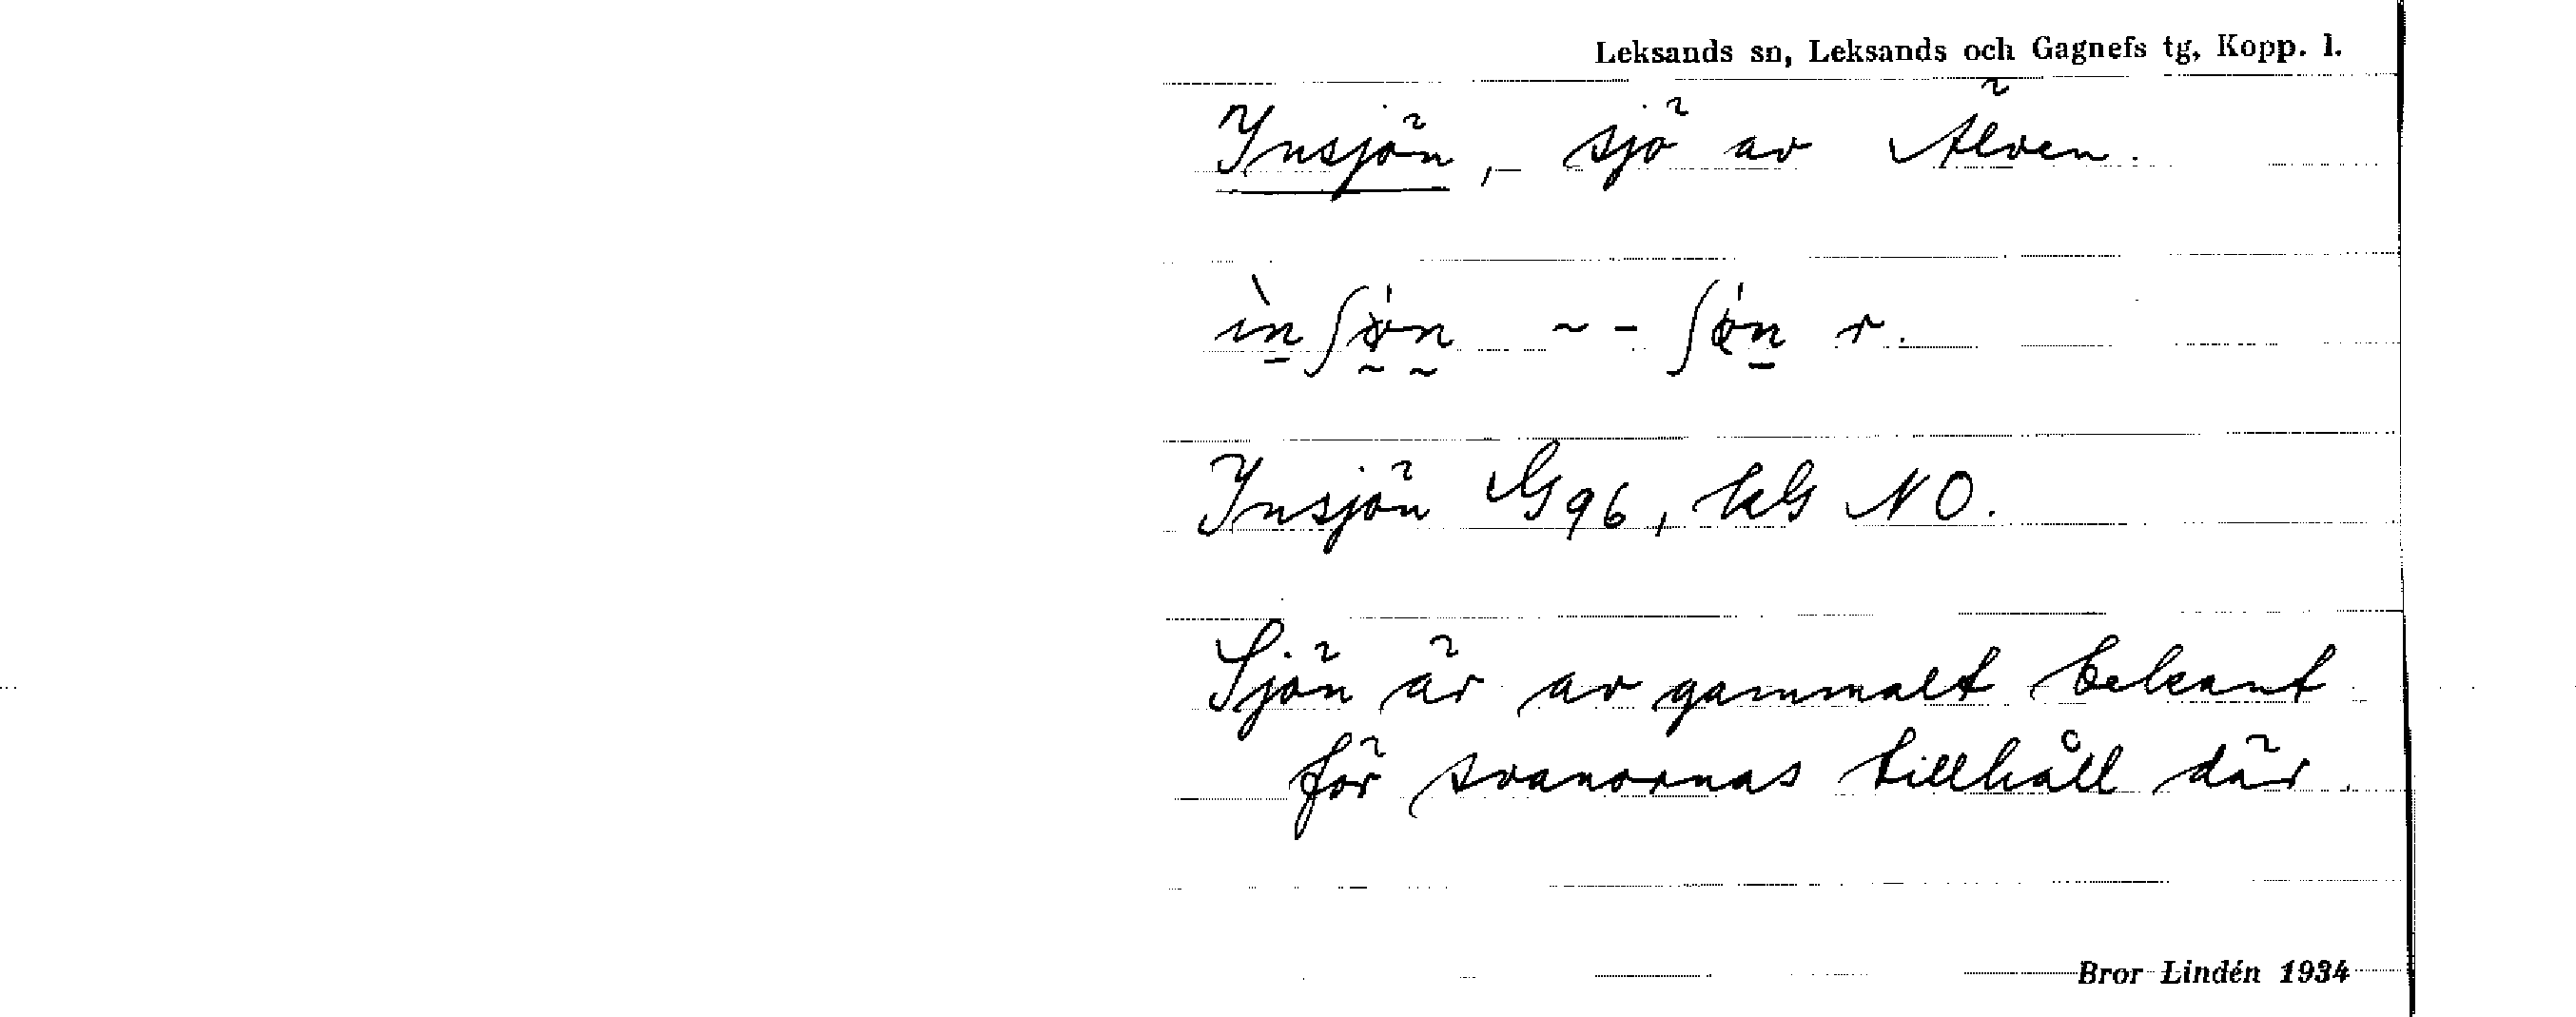 Leksands sn, Leksands och Gagnefs tg, Kopp. l.
Insjön, – sjö av Älven.
Insjön G 96, kG NO.
Sjön är av gammalt bekant
för svanornas tillhåll där.
Bror Lindén 1934